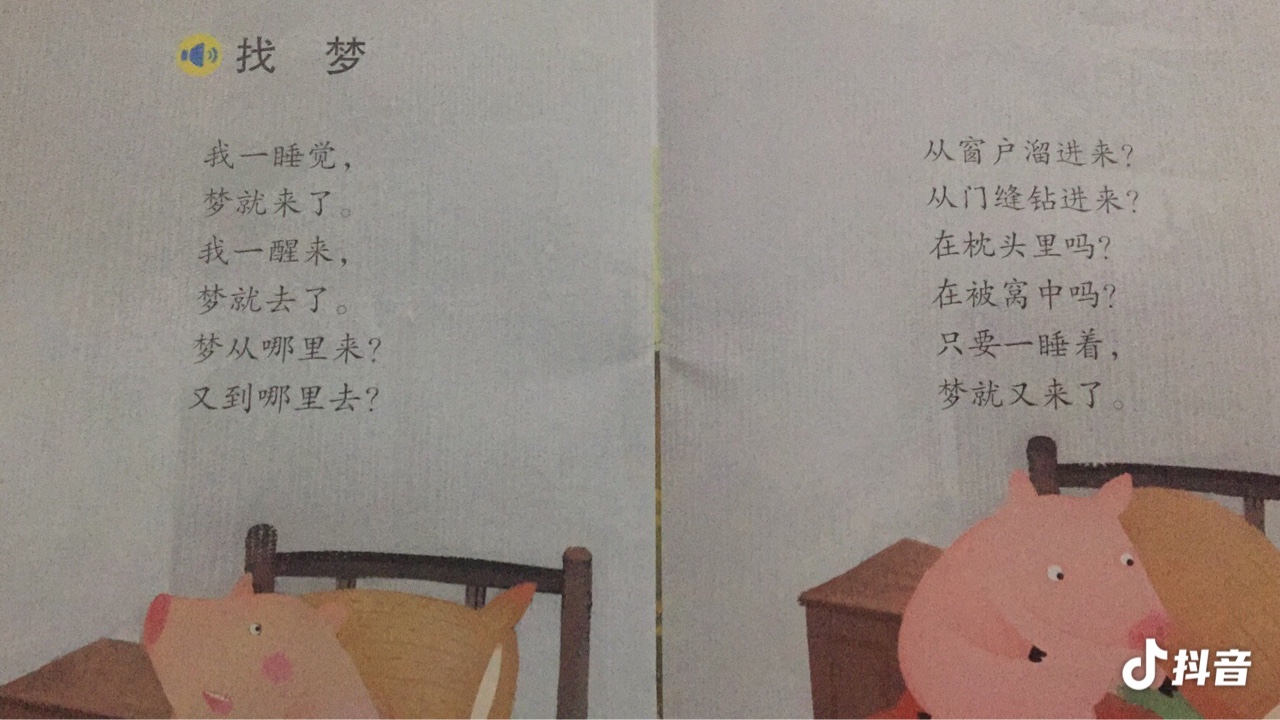 找 梦
我一睡觉，
梦就来了。
我一醒来，
梦就去了。
梦从哪里来？
又到哪里去？
从窗户溜进来？
从门缝钻进来？
在枕头里吗？
在被窝中吗？
只要一睡着，
梦就又来了。
抖音